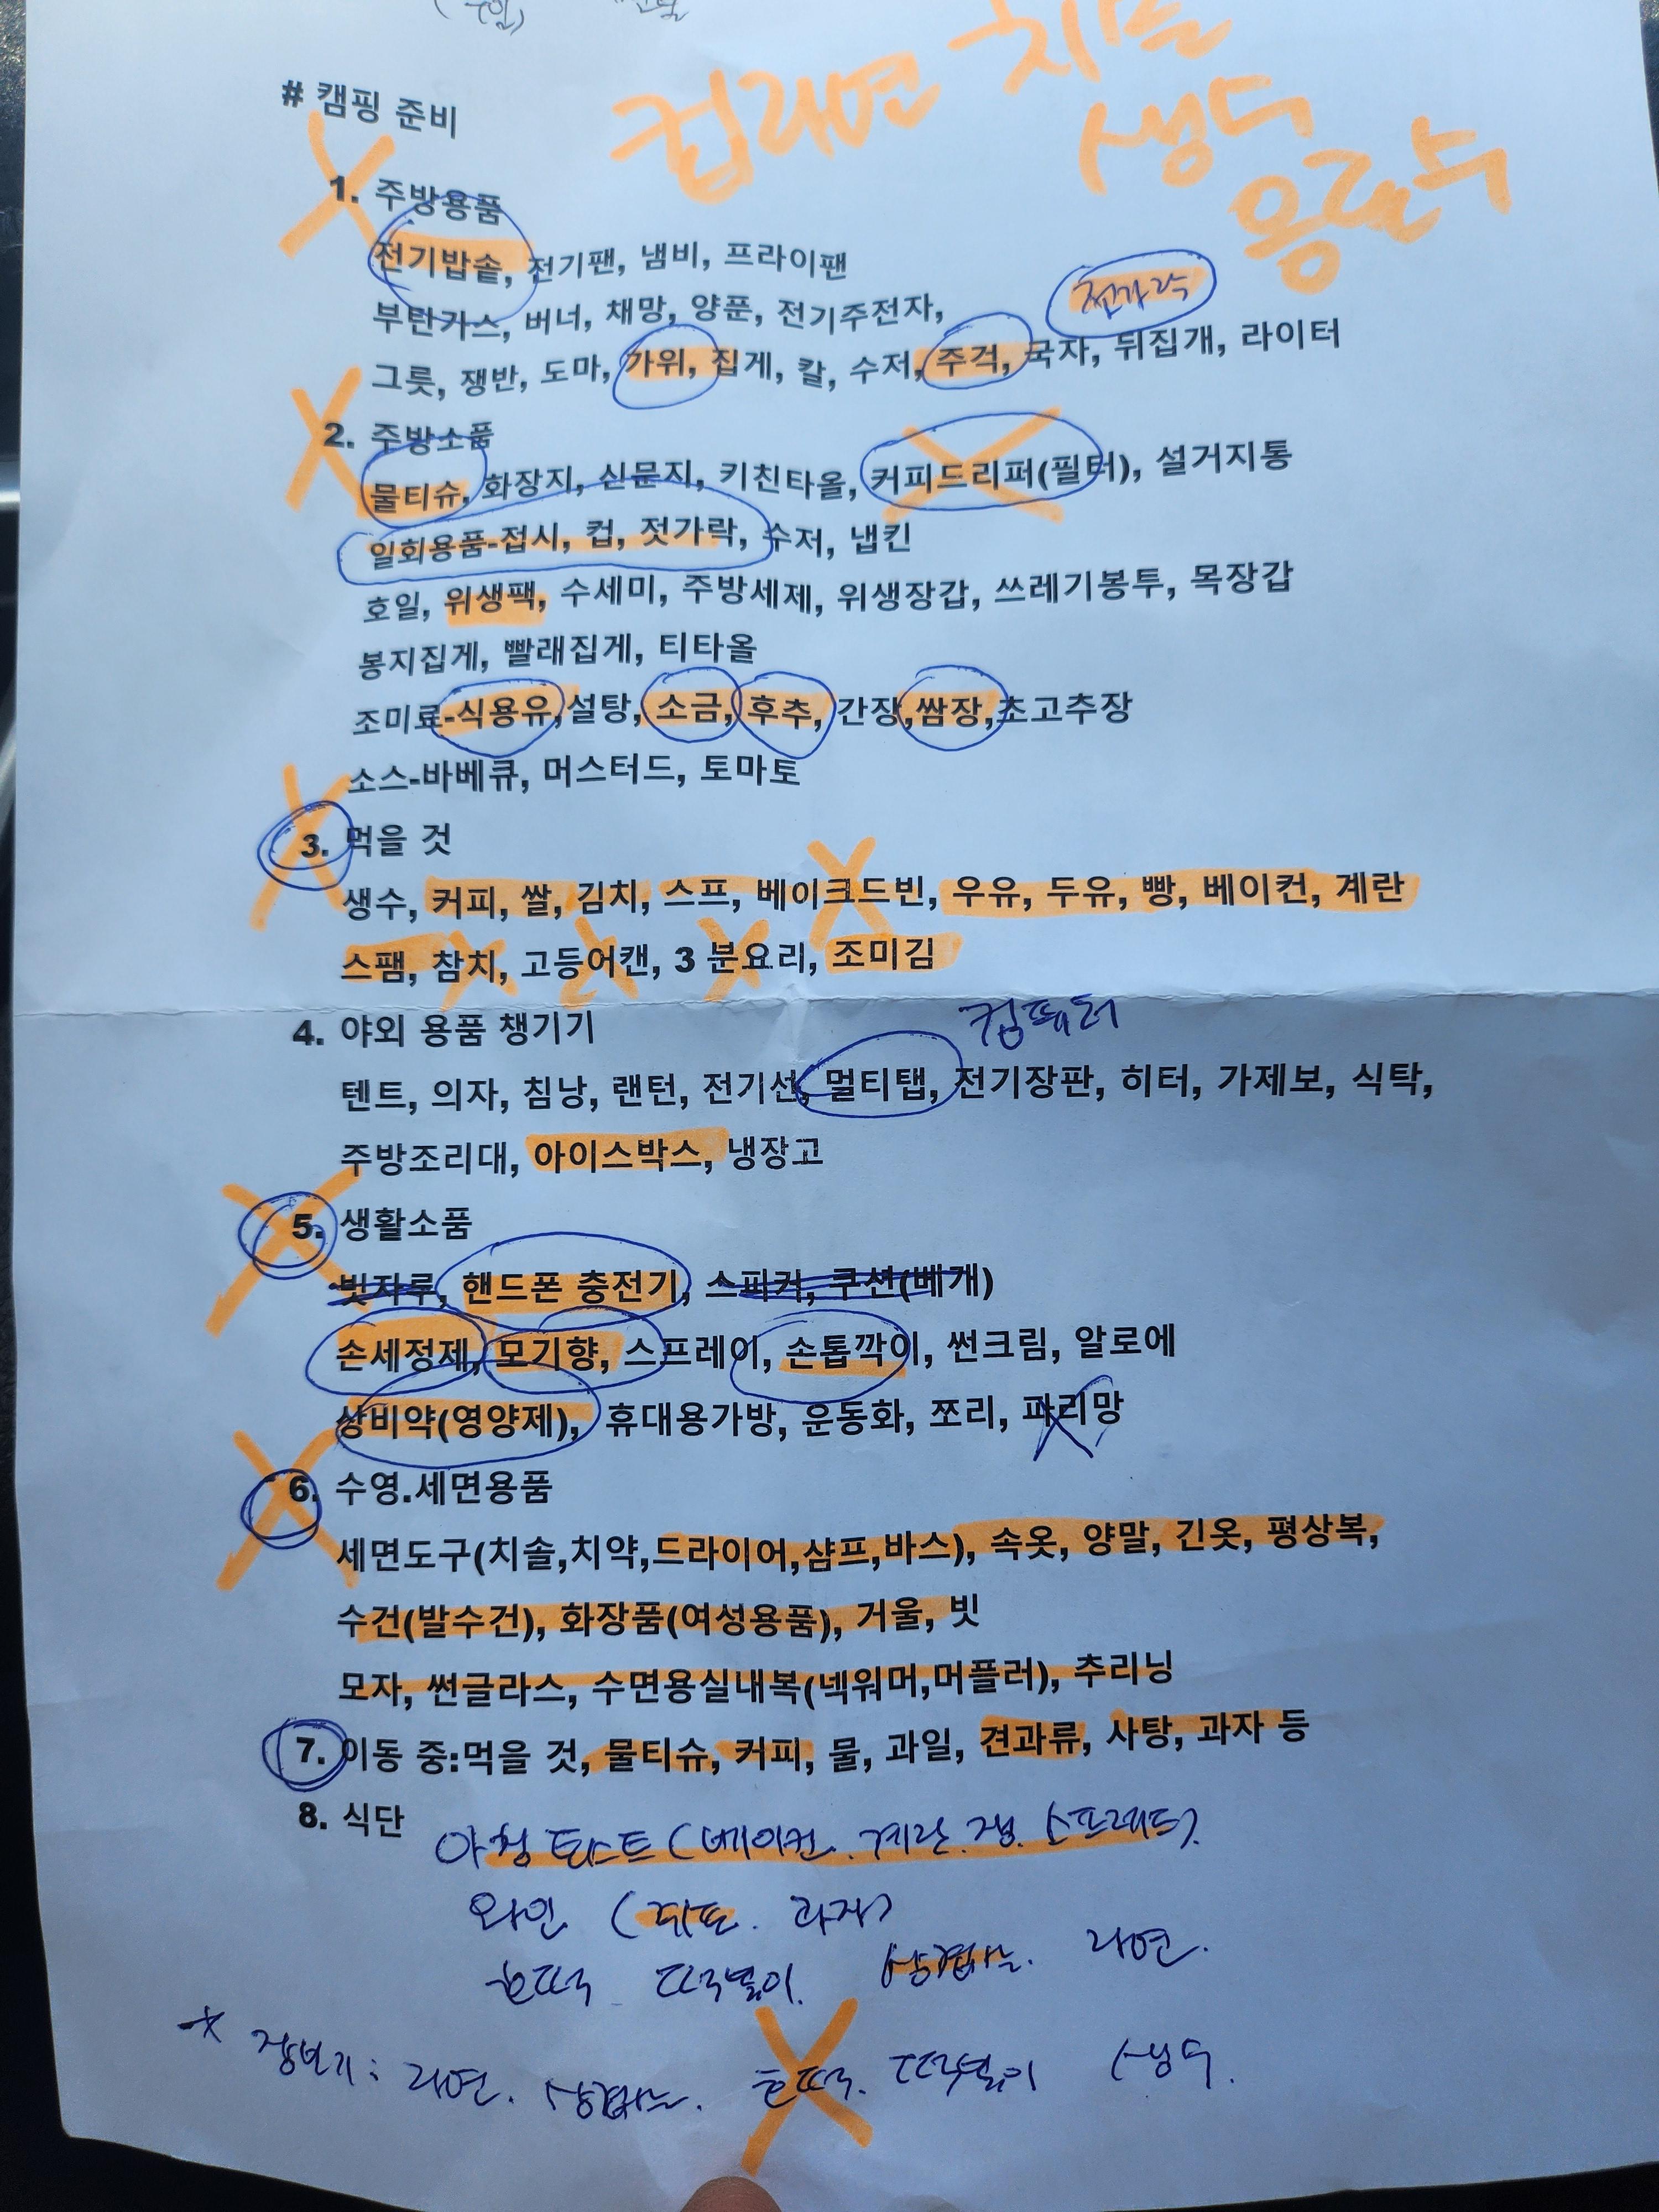 # 캠핑 준비
컵라면
생수
1. 주방용품
전기밥솥, 전기팬, 냄비, 프라이팬
부탄가스, 버너, 채망, 양푼, 전기주전자,
젓가락
그릇, 쟁반, 도마, 가위, 집게, 칼, 수저, 주걱, 국자, 뒤집개, 라이터
2. 주방소품
물티슈, 화장지, 신문지, 키친타올, 커피드리퍼(필터), 설거지통
일회용품-접시, 컵, 젓가락, 수저, 냅킨
호일, 위생팩, 수세미, 주방세제, 위생장갑, 쓰레기봉투, 목장갑
봉지집게, 빨래집게, 티타올
조미료-식용유,설탕, 소금, 후추, 간장,쌈장,초고추장
소스-바베큐, 머스터드, 토마토
3. 먹을 것
생수, 커피, 쌀, 김치, 스프, 베이크드빈, 우유, 두유, 빵, 베이컨, 계란
스팸, 참치, 고등어캔, 3 분요리, 조미김
4. 야외 용품 챙기기
컴퓨터
텐트, 의자, 침낭, 랜턴, 전기선, 멀티탭, 전기장판, 히터, 가제보, 식탁,
주방조리대, 아이스박스, 냉장고
5. 생활소품
빗자루, 핸드폰 충전기, 스피커, 쿠션(베개)
손세정제, 모기향, 스프레이, 손톱깍이, 썬크림, 알로에
상비약(영양제), 휴대용가방, 운동화, 쪼리, 파리망
6. 수영.세면용품
세면도구(치솔,치약,드라이어,샴프,바스), 속옷, 양말, 긴옷, 평상복,
수건(발수건), 화장품(여성용품), 거울, 빗
모자, 썬글라스, 수면용실내복(넥워머,머플러), 추리닝
7. 이동 중:먹을 것, 물티슈, 커피, 물, 과일, 견과류, 사탕, 과자 등
8. 식단
아침 토스트 (베이컨. 계란. 잼. 스프레드)
와인 (쥐포. 과자)
호떡 떡볶이. 삼겹살. 라면.
* 장보기: 라면. 삼겹살. 호떡. 떡볶이 생수.